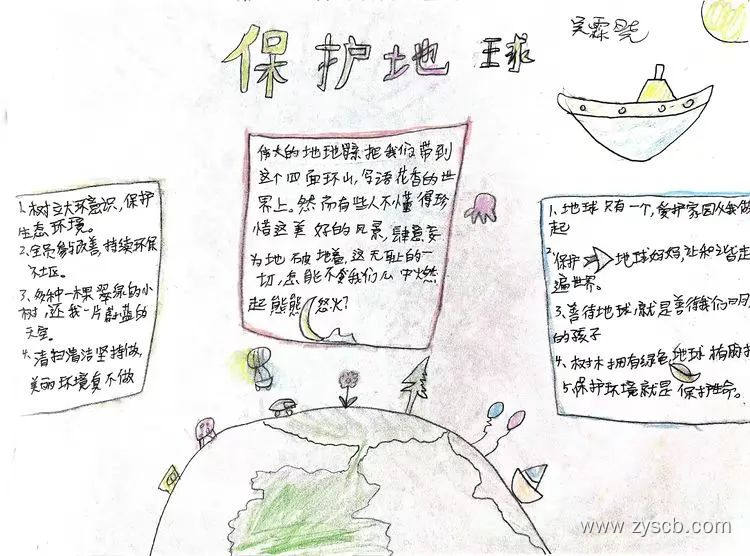 保护地球
吴霖
1.树立大环意识,保护
生态环境。
2.全员参与改善,持续环保
社区。
3.多种一棵翠绿的小
树,还我一片蔚蓝的
天空。
4.清扫清洁坚持做,
美丽环境真不做
伟大的地球把我们带到
这个四面环山,鸟语花香的世
界上。然而有些人不懂得珍
惜这美好的风景,肆意妄
为地破地着,这无耻的一
切,怎能不令我们心中燃
起熊熊怒火?
1.地球只有一个,爱护家园从我做
起
2.保护地球妈妈,让和谐走
遍世界。
3.善待地球,就是善待我们明
的孩子
4.树木拥有绿色,地球
5.保护环境就是保护生命。
www.zyscb.com